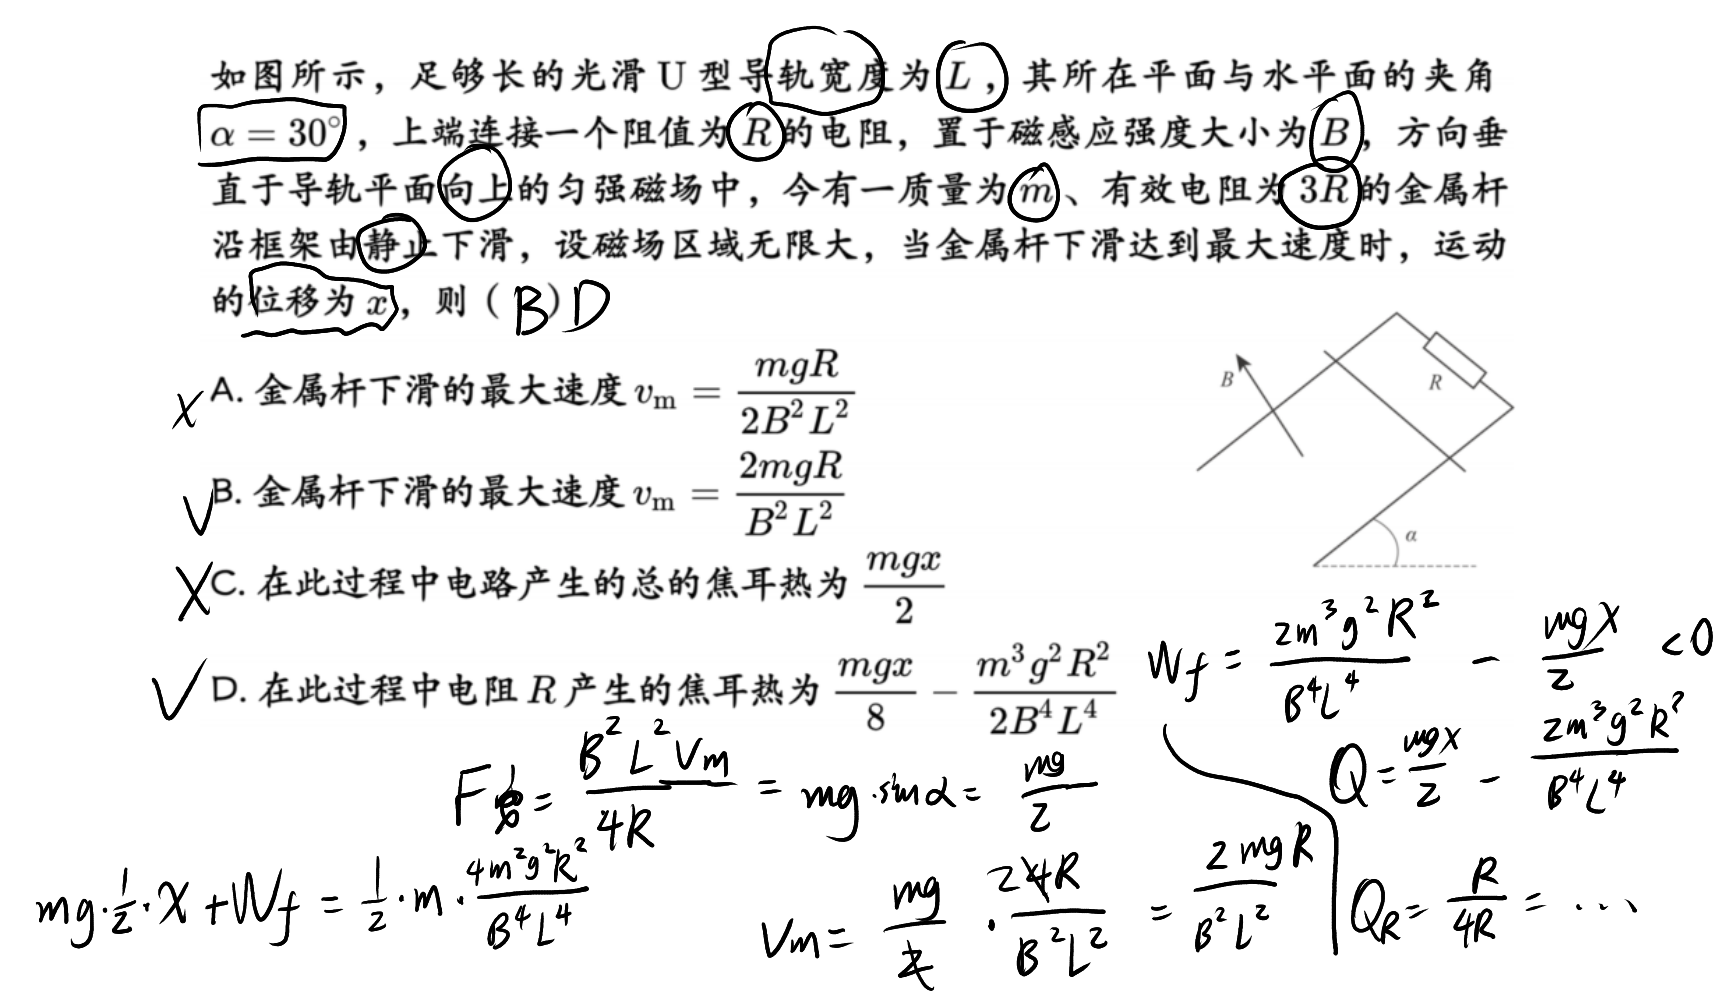 如图所示，足够长的光滑 U 型导轨宽度为 L，其所在平面与水平面的夹角
α = 30°，上端连接一个阻值为 R 的电阻，置于磁感应强度大小为 B，方向垂
直于导轨平面向上的匀强磁场中，今有一质量为 m、有效电阻为 3R 的金属杆
沿框架由静止下滑，设磁场区域无限大，当金属杆下滑达到最大速度时，运动
的位移为 x，则（B）D
B
R
α
× A. 金属杆下滑的最大速度 v_m = mgR / 2B²L²
√ B. 金属杆下滑的最大速度 v_m = 2mgR / B²L²
× C. 在此过程中电路产生的总的焦耳热为 mgx / 2
√ D. 在此过程中电阻 R 产生的焦耳热为 mgx / 8 − m³g²R² / 2B⁴L⁴
W_f = 2m³g²R² / B⁴L⁴ − mgx / 2 < 0
F安 = B²L²Vm / 4R = mg·sinα = mg / 2
Q = mgx / 2 − 2m³g²R² / B⁴L⁴
mg·1/2·x + W_f = 1/2·m·4m²g²R² / B⁴L⁴
Vm = mg / 2 · 24R / B²L² = 2mgR / B²L²
Q_R = R / 4R = ...